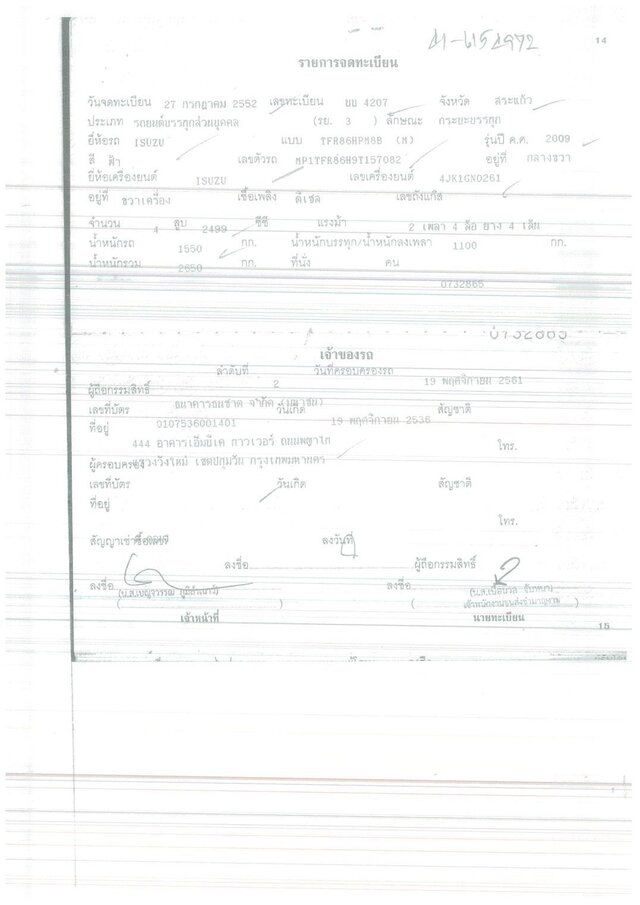 14
รายการจดทะเบียน
วันจดทะเบียน 27 กรกฎาคม 2552 เลขทะเบียน บบ 4207 จังหวัด สระแก้ว
ประเภท รถยนต์บรรทุกส่วนบุคคล (รย. 3 ) ลักษณะ กระบะบรรทุก
ยี่ห้อรถ ISUZU แบบ TFR86HPM8B (M) รุ่นปี ค.ศ. 2009
สี ฟ้า เลขตัวรถ MP1TFR86H9T157082 อยู่ที่ กลางขวา
ยี่ห้อเครื่องยนต์ ISUZU เลขเครื่องยนต์ 4JK1GN0261
อยู่ที่ ขวาเครื่อง เชื้อเพลิง ดีเซล เลขถังแก๊ส
จำนวน 4 สูบ 2499 ซีซี แรงม้า 2 เพลา 4 ล้อ ยาง 4 เส้น
น้ำหนักรถ 1550 กก. น้ำหนักบรรทุก/น้ำหนักลงเพลา 1100 กก.
น้ำหนักรวม 2650 กก. ที่นั่ง คน
0732865
เจ้าของรถ
ลำดับที่ 2 วันที่ครอบครองรถ 19 พฤศจิกายน 2561
ผู้ถือกรรมสิทธิ์ ธนาคารธนชาต จำกัด (มหาชน)
เลขที่บัตร 0107536001401 วันเกิด 19 พฤศจิกายน 2536 สัญชาติ
ที่อยู่ 444 อาคารเอ็มบีเค ทาวเวอร์ ถนนพญาไท โทร.
แขวงวังใหม่ เขตปทุมวัน กรุงเทพมหานคร
ผู้ครอบครอง
เลขที่บัตร วันเกิด สัญชาติ
ที่อยู่
โทร.
สัญญาเช่าซื้อเลขที่ ลงวันที่
ลงชื่อ ผู้ถือกรรมสิทธิ์
ลงชื่อ ลงชื่อ
เจ้าหน้าที่ นายทะเบียน
15